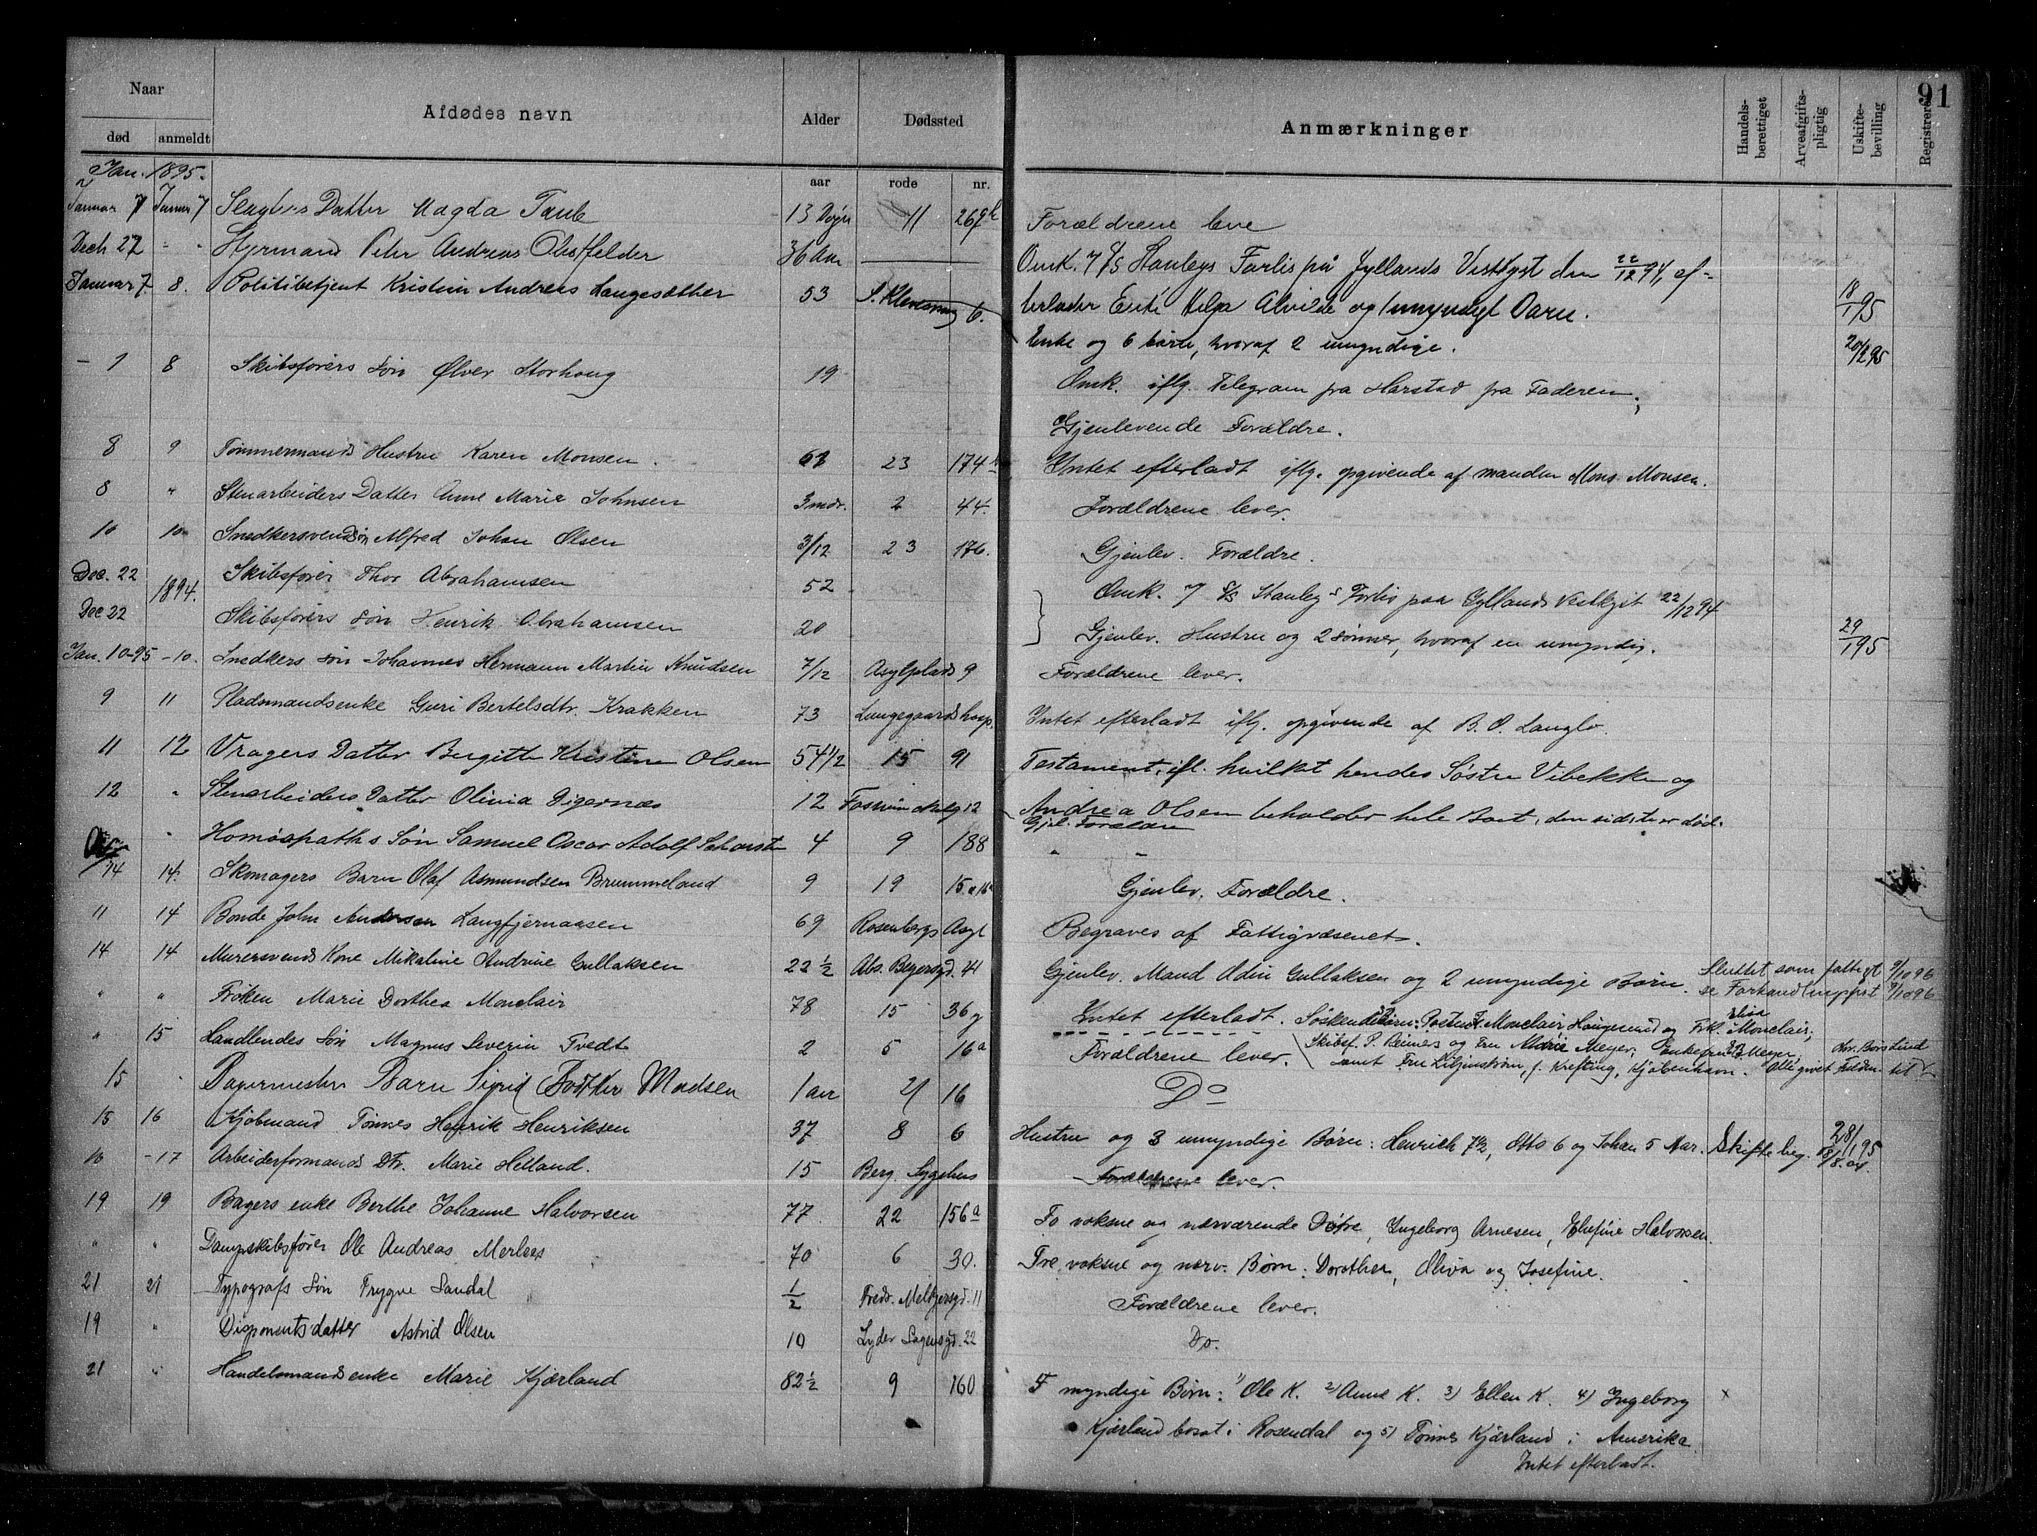 91
Naar
Afdødes navn
Alder
Dødssted
Anmærkninger
Handels-berettiget
Arveafgifts-pligtig
Uskifte-bevilling
Registreret
død anmeldt
aar rode nr.
Jan. 1895.
Januar 7 Januar 7 Slagters Datter Magda Taule 13 Døgn 11 269 b Forældrene leve
Decb 27 " " Styrmand Peter Andreas Obstfelder 36 Aar Omk. v/ S/S Stanleys Forlis på Jyllands Vestkyst den 22/12 94, ef-
Januar 7. 8. Politibetjent Kristian Andreas Haugesæther 53 6. terlader Enke Helga Alvilde og 1 umyndigt Barn. 18/1 95
Enke og 6 børn, hvoraf 2 umyndige. 20/2 95
— 7 8 Skibsførers Søn Ølver Storhaug 19 Omk. iflg. Telegram fra Harstad fra Faderen;
Gjenlevende Forældre.
8 9 Tømmermands Hustru Karen Monsen. 67 23 174 b Intet efterladt iflg. opgivende af manden Mons Monsen.
8 " Stenarbeiders Datter Anne Marie Johnsen 3 mdr. 2 44. Forældrene lever.
10 10 Snedkersvends Søn Alfred Johan Olsen 3/12 23 176. Gjenlev. Forældre.
Dec. 22 1894. Skibsfører Thor Abrahamsen 52 Omk. v/ S/S Stanleys Forlis paa Jyllands Vestkyst 22/12 94
Dec 22 Skibsførers Søn Henrik Abrahamsen 20 Gjenlev. Hustru og 2 sønner, hvoraf en umyndig. 29/1 95
Jan. 10-95 -10. Snedkers Søn Johannes Hermann Martin Knudsen 7/12 Asylplads 9 Forældrene lever.
9 11 Pladsmandsenke Guri Bertelsdtr. Krakken 73 Lungegaards hosp. Intet efterladt iflg. opgivende af B. O. Langlo.
11 12 Vragers Datter Birgitte Kristine Olsen 54 1/2 15 91 Testament, ifl. hvilket hendes Søstre Vibekke og
12 " Stenarbeiders Datter Olivia Digernæs 12 12 Andrea Olsen beholder hele Boet, den sidste er død.
Gjel. Forældre
" Homøopaths Søn Samuel Oscar Adolf 4 9 188 " "
14 14. Skomagers Barn Olaf Asmundsen Brummeland 9 19 15 a 16a Gjenlev. Forældre.
11 14 Bonde John Andersen Langfjernaasen 69 Rosenbergs Asyl Begraves af Fattigvæsenet.
14 14 Murersvends Kone Mikaline Andrine Gullaksen 22 1/2 Abs. Beyersgd. 44 Gjenlev. Mand Adin Gullaksen og 2 umyndige Børn. Sluttet som fattigt 9/10 96
se Forhandl 9/10 96
" " Frøken Marie Dorthea Monclair 78 15 36 y Intet efterladt. Søskendebørn: Monclair, Haugesund og Frk. Monclair;
Skibsf. P. Reimers og Fru Meyer; Enkefru Meyer,
" 15 Handlendes Søn Magnus Severin Tvedt 2 5 16 a Forældrene lever. samt Fru Liljenstrøm, f. Krefting, Kjøbenhavn.
15 " Pagermester Barn Sigrid Madsen 1 aar 21 16 Do
15 16 Kjøbmand Tønnes Henrik Henriksen 37 8 6 Hustru og 3 umyndige Børn: Henrich 7 1/2, Otto 6 og Johan 5 Aar. Skifte beg. 28/1 95
16 -17 Arbeiderformands Dtr. Marie Helland. 15 Berg. Sygehus Forældrene lever.
19 19 Bagers enke Berthe Johanne Halvorsen 77. 22 156 a To voksne og nærværende Døtre, Ingeborg Arnesen, Elefine Halvorsen.
" " Dampskibsfører Ole Andreas Merlees 70 6 30. Tre voksne og nærv. Børn: Dorothea, Oliva og Josefine.
21 21 Typografs Søn Trygve Sandal 1/2 Fredr. Meltzersgd. 11 Forældrene lever.
19 " Disponents datter Astrid Olsen 10 Lyder Sagensgd. 22 Do.
21 " Handelsmands enke Marie Kjærland 82 1/2 9 160 5 myndige Børn: 1) Ole K. 2) Anne K. 3) Ellen K. 4) Ingeborg x
Kjærland bosat i Rosendal og 5) Tønnes Kjærland i Amerika
Intet efterladt.